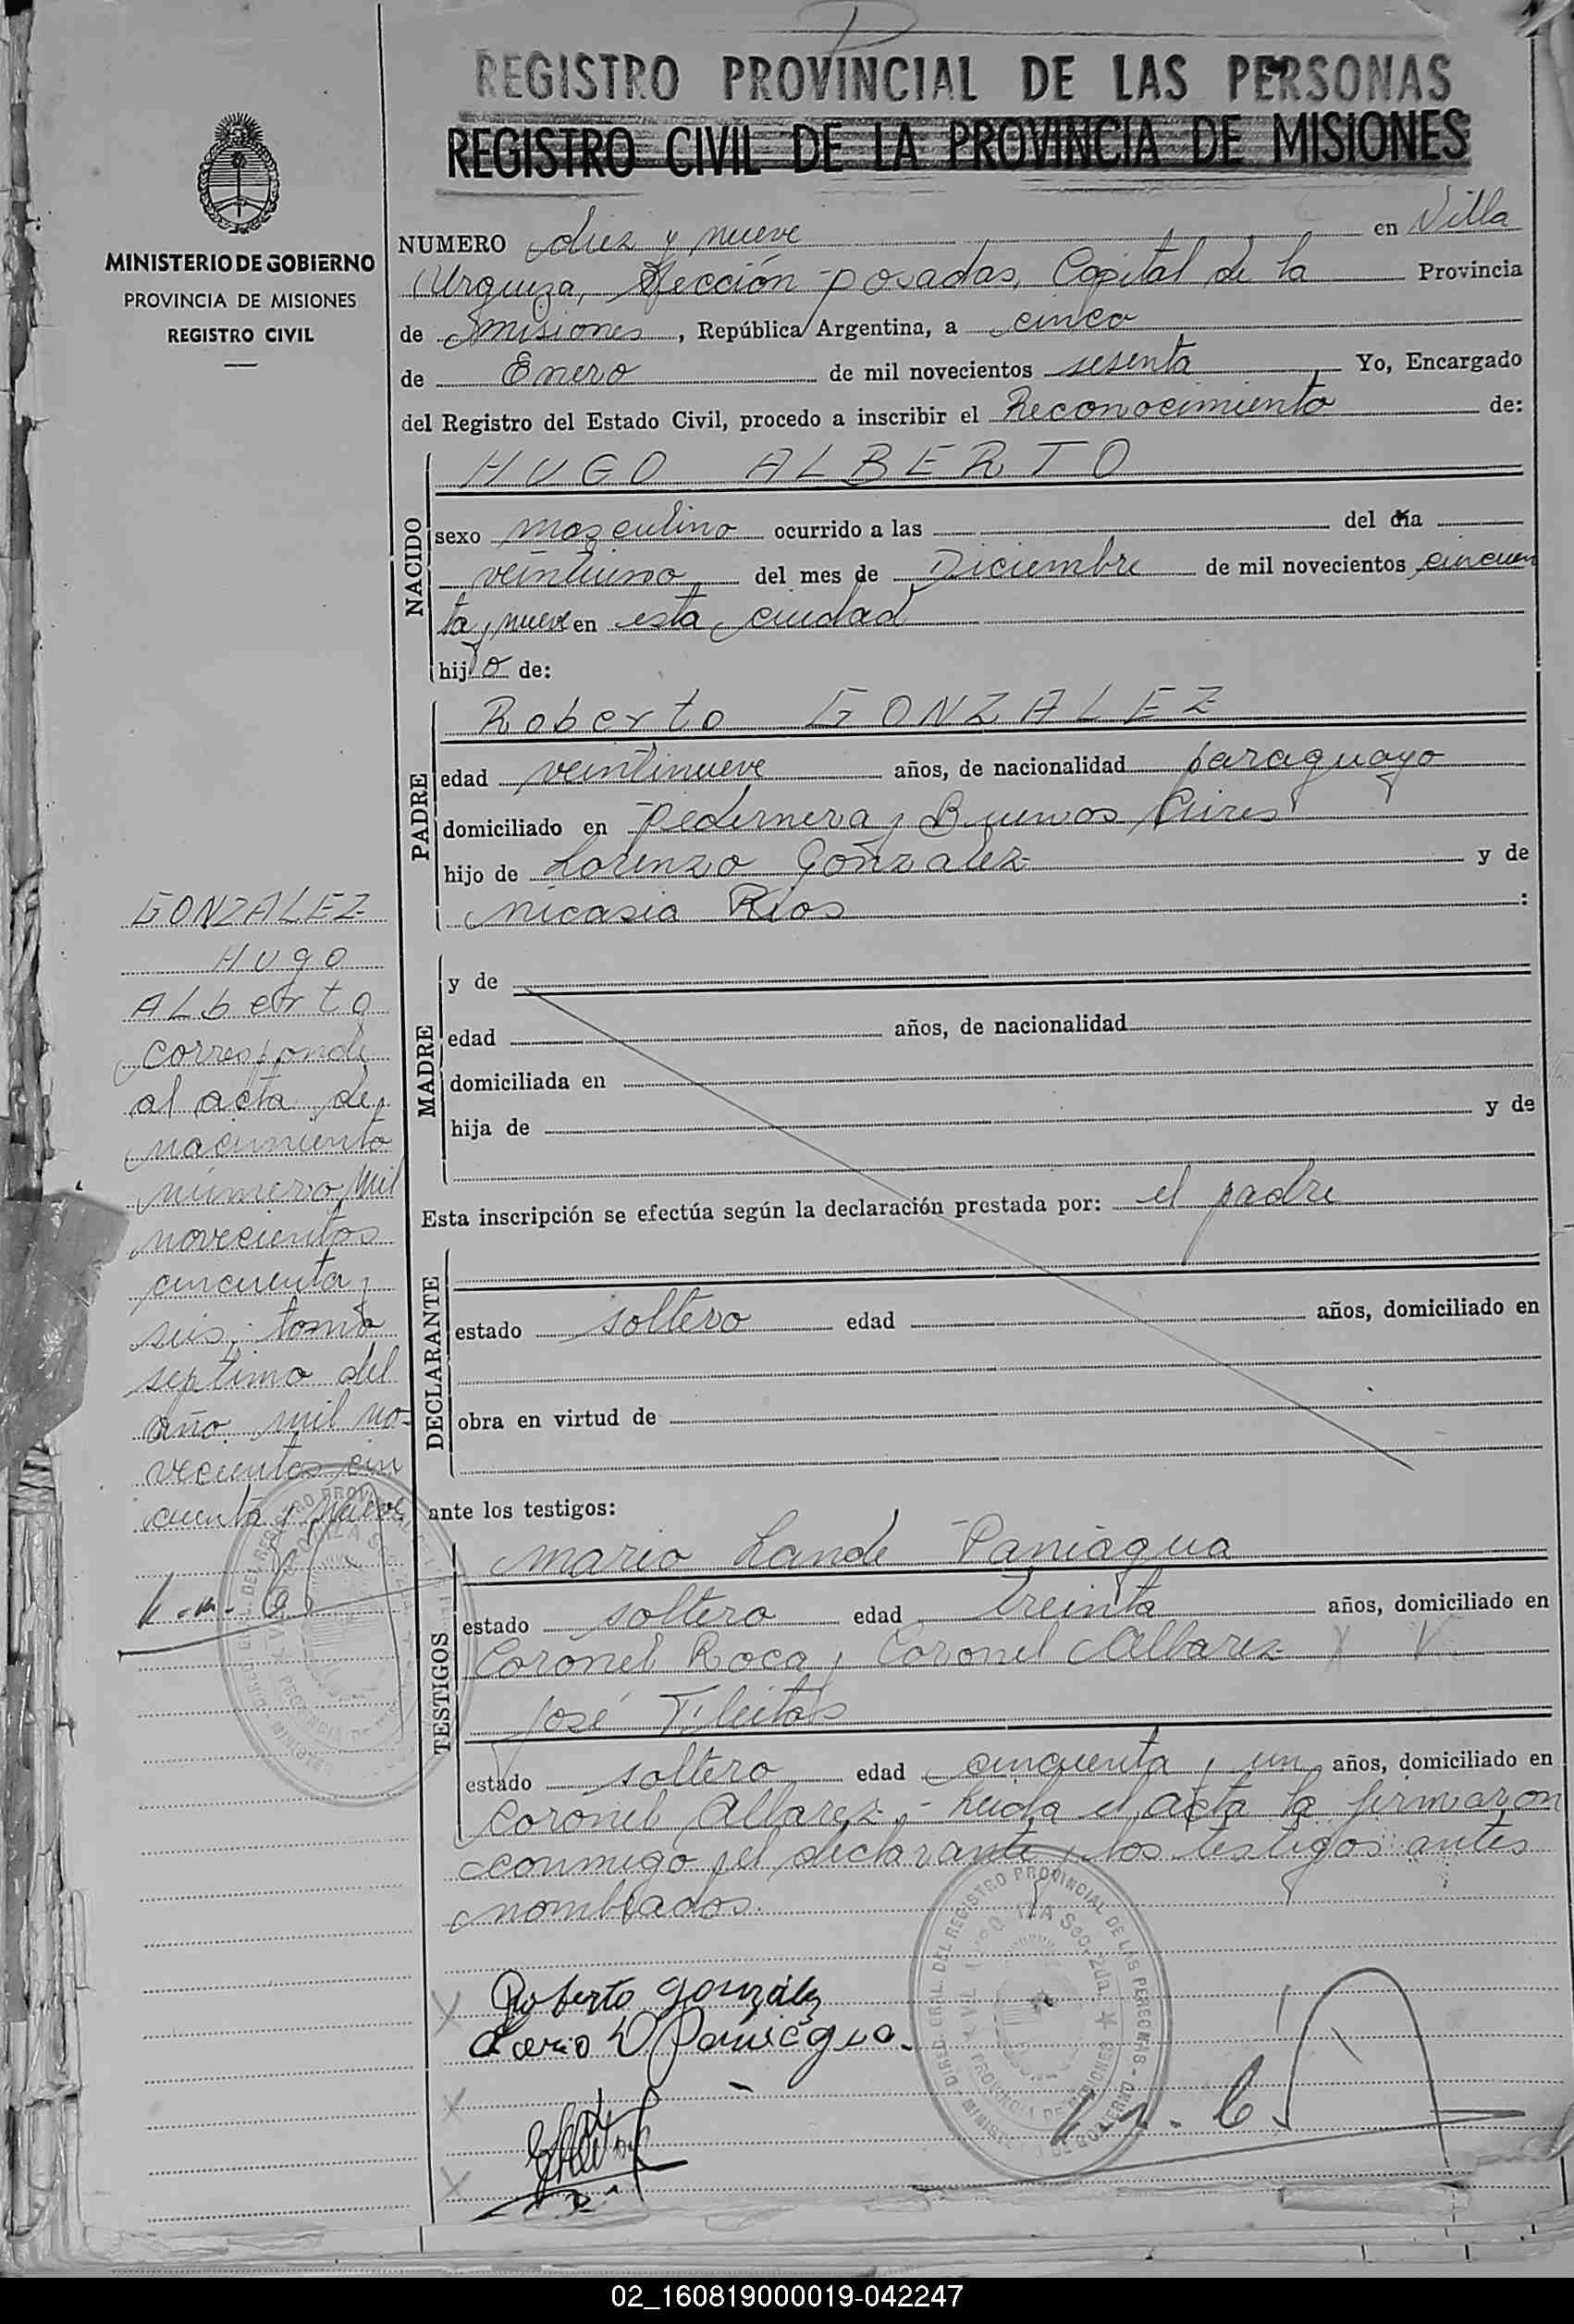 REGISTRO PROVINCIAL DE LAS PERSONAS
REGISTRO CIVIL DE LA PROVINCIA DE MISIONES
MINISTERIO DE GOBIERNO
PROVINCIA DE MISIONES
REGISTRO CIVIL
NUMERO diez y nueve en Villa
Urquiza, Sección posadas, Capital de la Provincia
de misiones, República Argentina, a cinco
de Enero de mil novecientos sesenta, Yo, Encargado
del Registro del Estado Civil, procedo a inscribir el Reconocimiento de:
NACIDO
HUGO ALBERTO
sexo masculino ocurrido a las del día
veintiuno del mes de Diciembre de mil novecientos cincuen
ta y nueve en esta ciudad
hijo de:
PADRE
Roberto GONZALEZ
edad veintinueve años, de nacionalidad paraguayo
domiciliado en Pedernera y Buenos Aires
hijo de Lorenzo Gonzalez y de
nicasia Rios :
MADRE
y de
edad años, de nacionalidad
domiciliada en
hija de y de
Esta inscripción se efectúa según la declaración prestada por: el padre
DECLARANTE
estado soltero edad años, domiciliado en
obra en virtud de
ante los testigos:
TESTIGOS
mario Lande Paniagua
estado soltero edad treinta años, domiciliado en
Coronel Roca y Coronel Allarez X
José Fleitas
estado soltero edad cincuenta y un años, domiciliado en
coronel Allarez.- Leida el acta la firmaron
conmigo, el declarante y los testigos antes
nombrados.
GONZALEZ
Hugo
ALberto
corresponde
al acta de
nacimiento
número mil
novecientos
cincuenta y
seis, tomo
septimo del
año mil no-
vecientos cin
cuenta y nueve
Roberto gonzález
Paniagua.
DIREC. GRAL. DEL REGISTRO PROVINCIAL DE LAS PERSONAS - MINISTERIO DE GOBIERNO
PROVINCIA DE MISIONES
Secc. 2da.
02_160819000019-042247